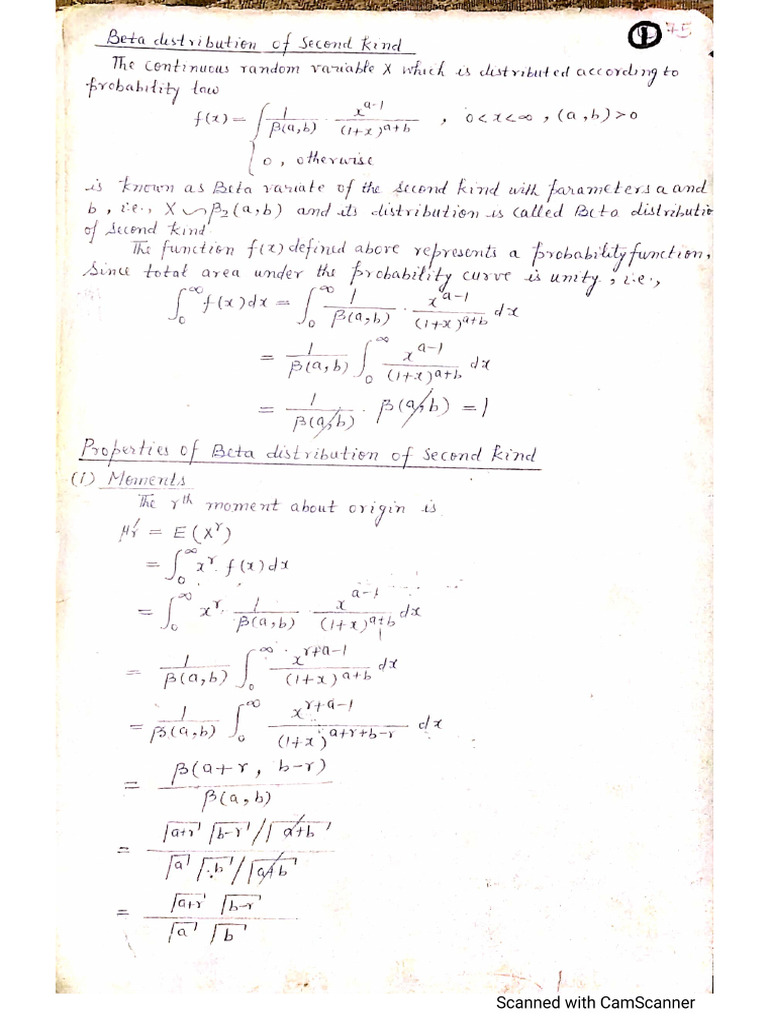 ① 75
Beta distribution of Second Kind
The continuous random variable X which is distributed according to
probability law
f(x) = { 1/β(a,b) · x^(a-1)/(1+x)^(a+b) , 0<x<∞, (a,b)>0
0, otherwise
is known as Beta variate of the second kind with parameters a and
b, i.e., X ∽ β₂(a,b) and its distribution is called Beta distributio
of Second Kind.
The function f(x) defined above represents a probability function,
Since total area under the probability curve is unity, i.e.,
∫₀^∞ f(x)dx = ∫₀^∞ 1/β(a,b) · x^(a-1)/(1+x)^(a+b) dx
= 1/β(a,b) ∫₀^∞ x^(a-1)/(1+x)^(a+b) dx
= 1/β(a,b) · β(a,b) = 1
Properties of Beta distribution of Second Kind
(i) Moments
The rth moment about origin is
μr′ = E(X^r)
= ∫₀^∞ x^r f(x)dx
= ∫₀^∞ x^r · 1/β(a,b) · x^(a-1)/(1+x)^(a+b) dx
= 1/β(a,b) ∫₀^∞ x^(r+a-1)/(1+x)^(a+b) dx
= 1/β(a,b) ∫₀^∞ x^(r+a-1)/(1+x)^(a+r+b-r) dx
= β(a+r, b-r)/β(a,b)
= Γ(a+r) Γ(b-r) / Γ(a+b) / Γ(a) Γ(b) / Γ(a+b)
= Γ(a+r) Γ(b-r) / Γ(a) Γ(b)
Scanned with CamScanner